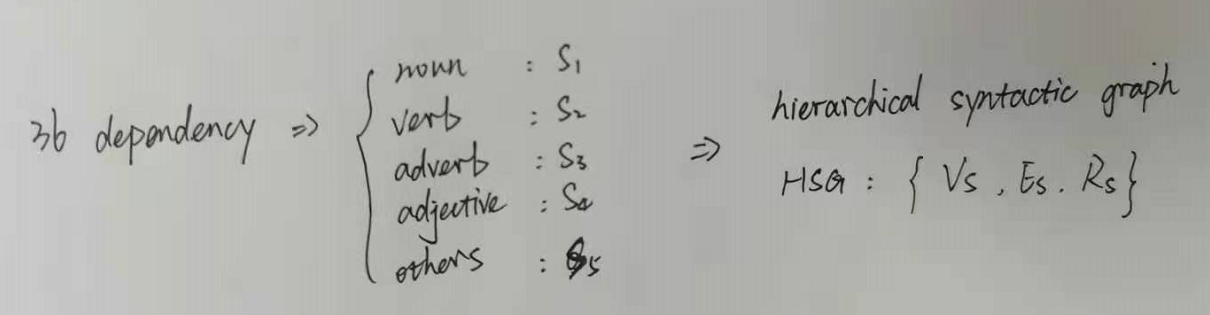 36 dependency ⇒ {
noun : S1
verb : S2
adverb : S3
adjective : S4
others : S5
⇒
hierarchical syntactic graph
HSG : { Vs , Es . Rs }